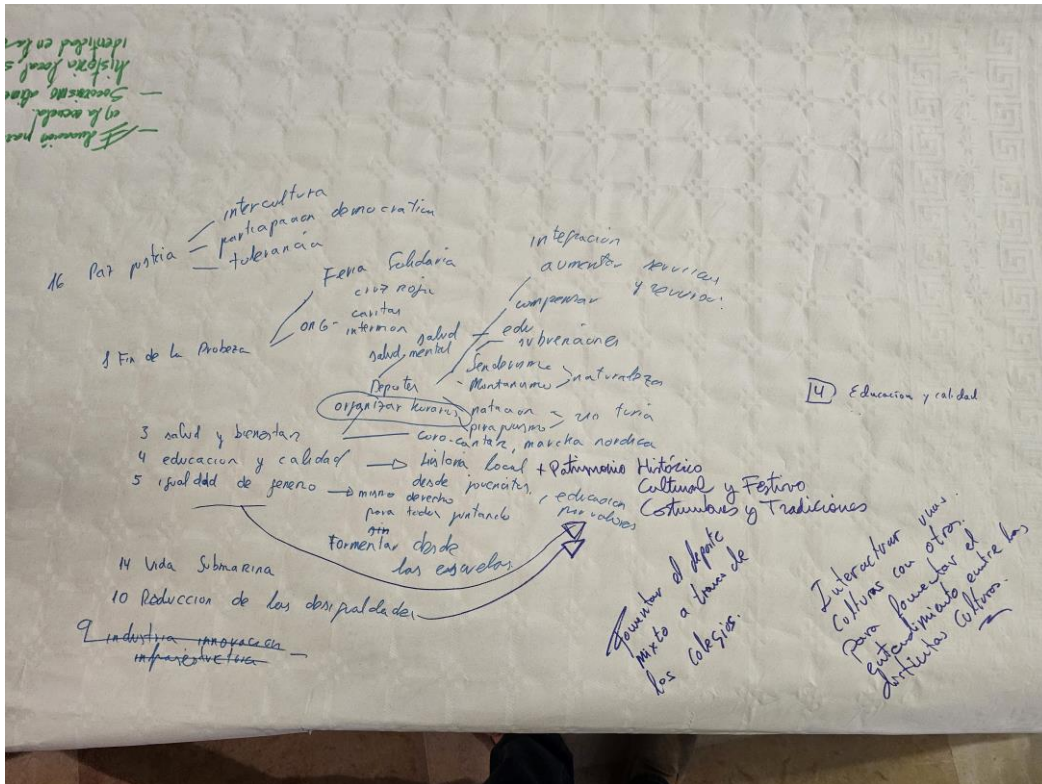 identidad en la
historia local, s
— Socorrismo
en la escuela.
— Educación par
intercultura
participacion democratica
tolerancia
16 Paz justicia
Feria Solidaria
cruz roja
caritas
ONG - intermon
1 Fin de la Probeza
integracion
aumentar servicios
y recursos
compensar
edu
subvenciones
salud
salud mental
Deportes
Senderismo
Montanismo > naturaleza
organizar horarios
natacion
piraguismo > rio turia
coro-cantar, marcha nordica
3 salud y bienestar
4 educacion y calidad → historia local + Patrimonio Histórico
desde jovencitos.
Cultural y Festivo
Costumbres y Tradiciones
5 igualdad de genero → mismo derecho
para todos juntando
sin
, educacion
por valores
Formentar desde
las escuelas
14 Vida Submarina
10 Reduccion de las desigualdades
9 industria innovacion
infraestructura
4 Educacion y calidad
Fomentar el deporte
mixto a traves de
los colegios.
Interactuar unas
culturas con otras.
Para fomentar el
entendimiento entre las
distintas culturas.